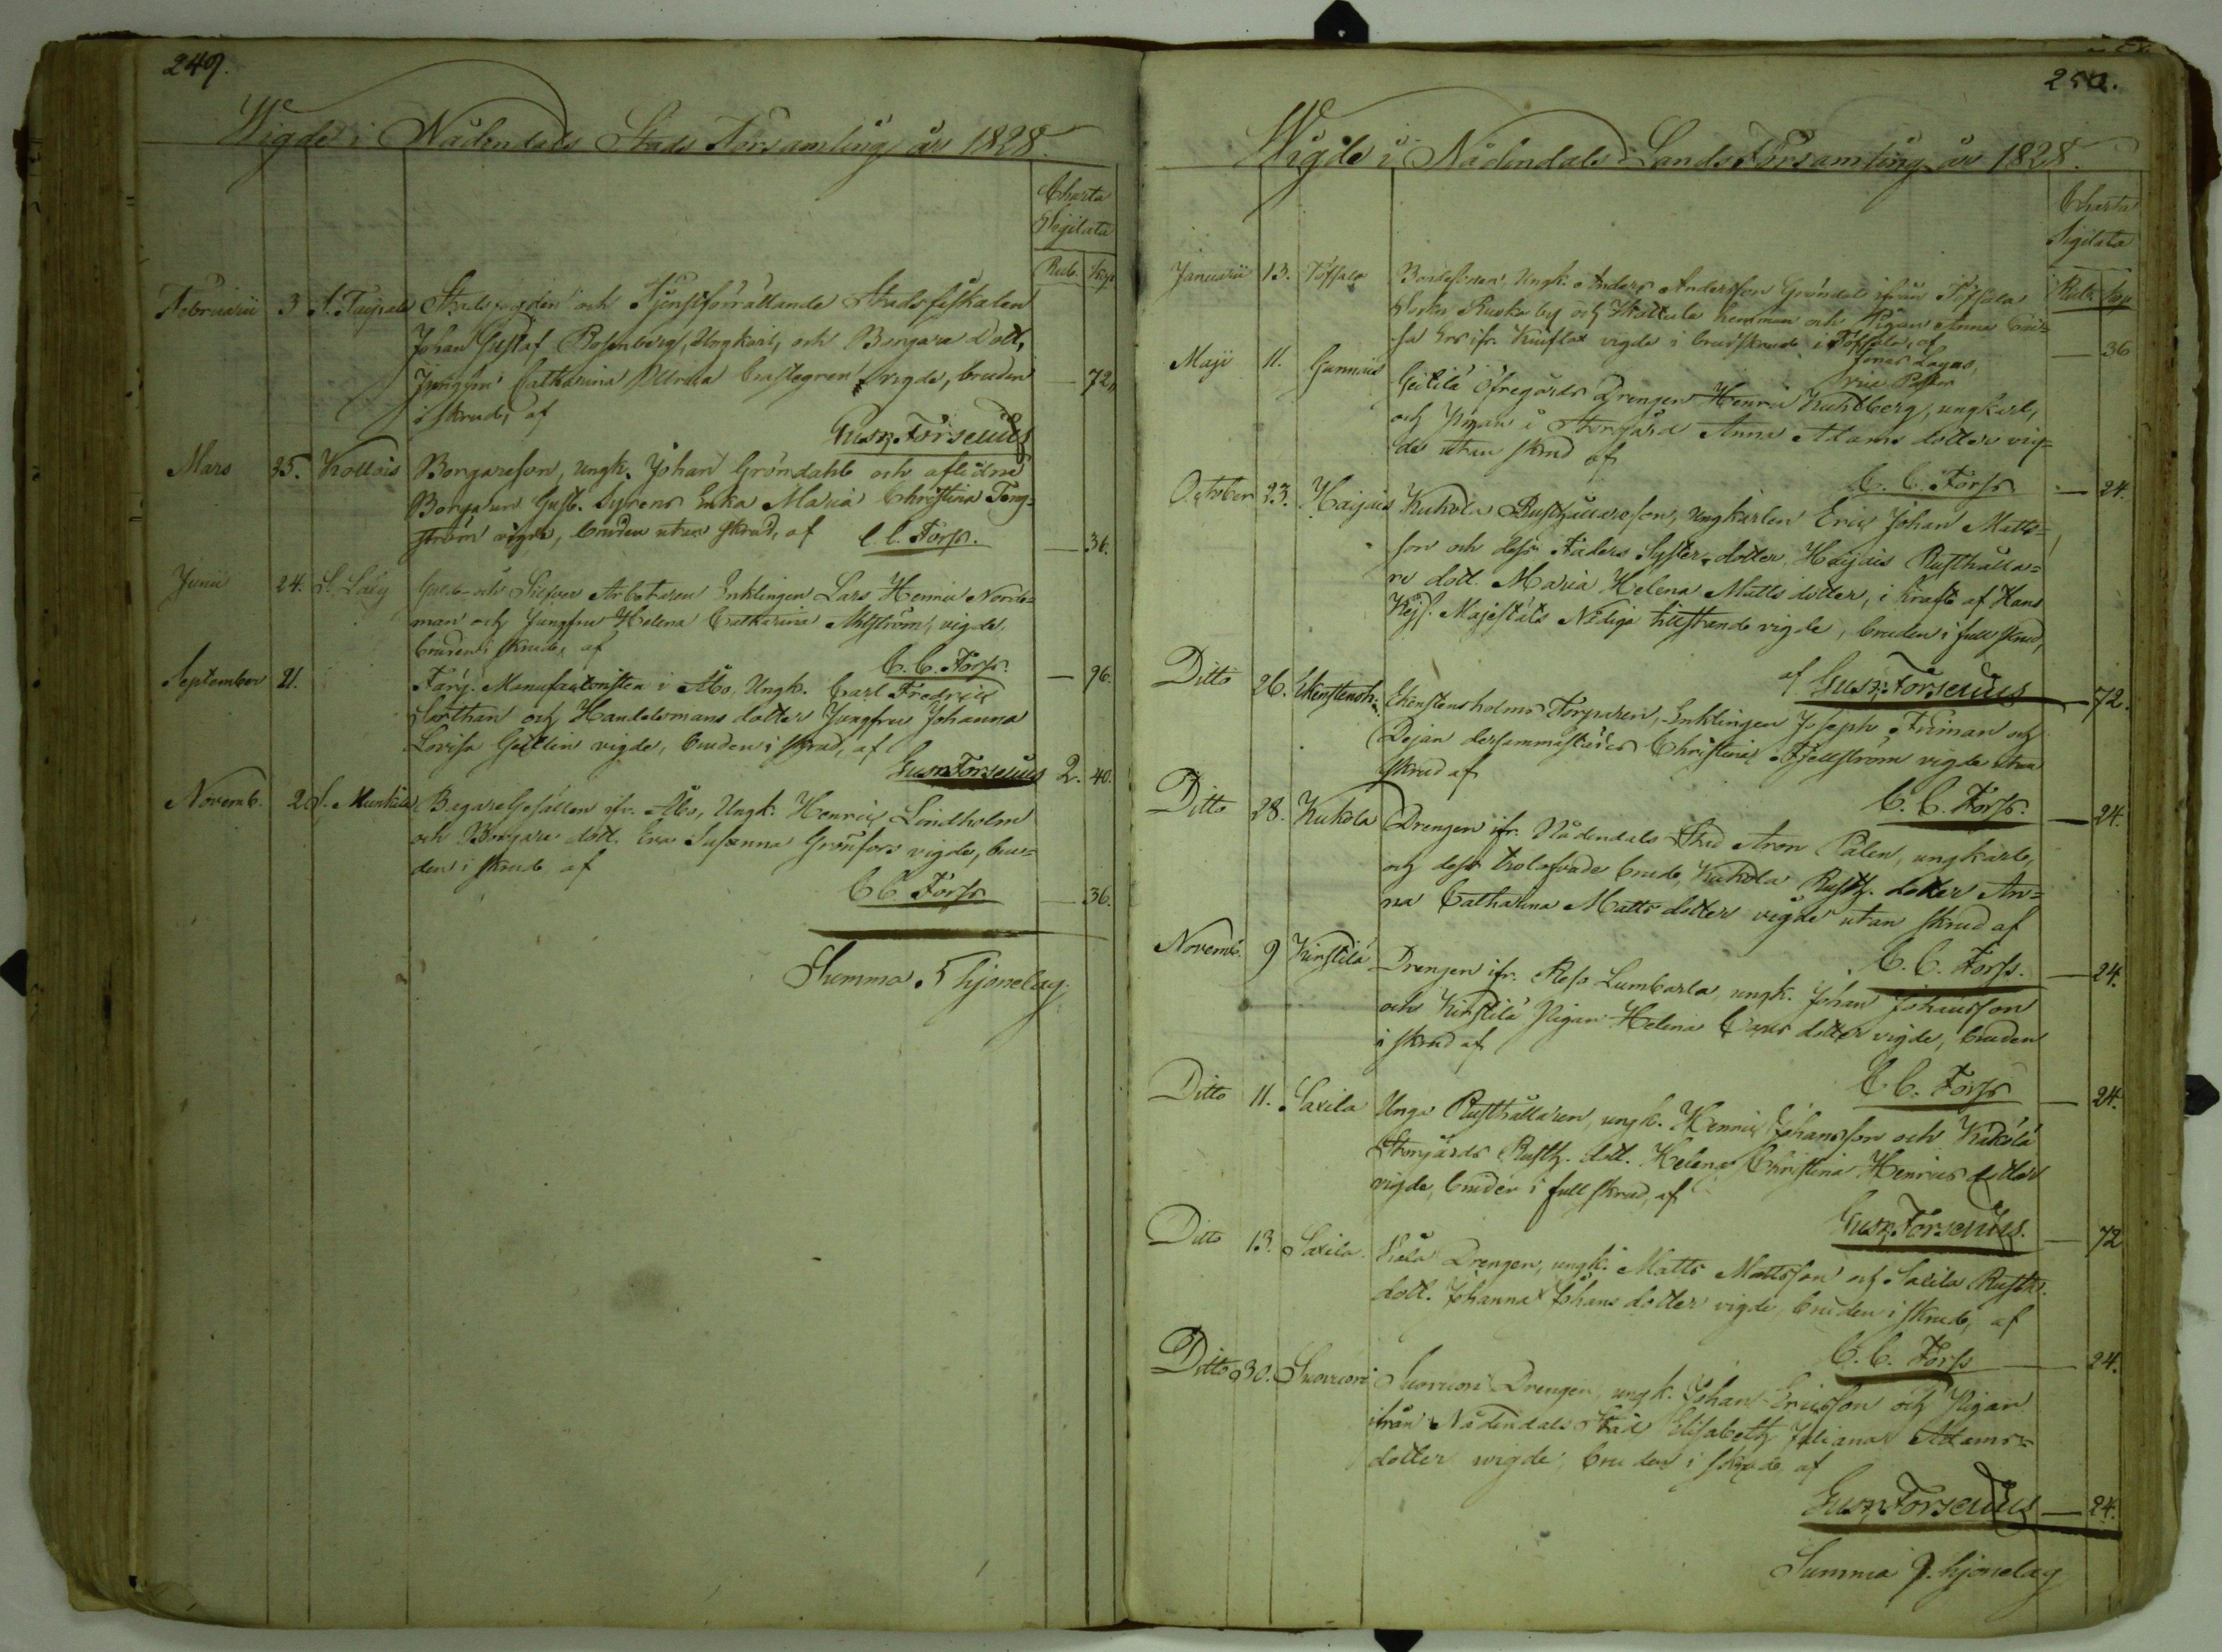 249.
Wigde i Nådendals Stads Församling år 1828.
Charta
Sigilata
Rub. Kop
Februarii 3 Stadsfogden och Tjenstförrättande Stadsfiskalen
Johan Gustaf Rosenberg, Ungkarl, och Borgare Dott.
Jungfru Catharina Ulrica Castegren vigde, bruden — 72.
i skrud, af
Gust. Forselius
Mars 25. Kollois Borgareson, ungk. Johan Gröndahl och aflidne
Borgaren Gust. Syrens Enka Maria Christina Teng=
ström vigde, bruden utan skrud, af C. C. Forss. — 36.
Junii 24. Guld- och Silfver Arbetaren Enklingen Lars Henric Nord=
man och Jungfru Helena Catharina Ahlström, vigde,
bruden i skrud, af
C. C. Forss. — 96.
September 21. Färg. Manufactoristen i Åbo, Ungk. Carl Fredric
Sarthan och Handelsmans dotter Jungfru Johanna
Lovisa Geitlin vigde, bruden i skrud, af
Gust. Forselius 2. 40.
Novemb. 2 Bagare Gesällen ifr. Åbo, Ungk. Henric Lindholm
och Borgare dott. Eva Susanna Grönfors vigde, bru=
den i skrud af
C. C. Forss. — 36.
Summa. 5 hjonelag.
250.
Wigde i Nådendals Lands Församling år 1828.
Charta
Sigilata
Rub. Kop
Januarii 13. Töfsala Bondesonen, Ungk. Anders Andersson Gröndal ifrån Töfsala
Ruskaby och hemman och Pigan Anna
vigde i brudskrud i Töfsala, af
Jonas Lagus, — 36
Vice Pastor
Maji 11. Gunnais Geitilä Öfregårds Drengen Henric Kuhlberg, ungkarl,
och Pigan i Storgård Anna Adams dotter vig=
de utan skrud af
C. C. Forss — 24.
October 23. Haijais Kukola Rusthållareson, Ungkarlen Eric Johan Matts=
son och dess Faders Syster-dotter, Haijais Rusthålla=
re dott. Maria Helena Matts dotter, i kraft af Hans
Kejs. Majestäts Nådiga tillstånd vigde, bruden i full skrud,
af Gust. Forselius — 72.
Ditto 26. Ekenstensh. Ekenstensholms Torparen, Enklingen Joseph Friman och
Dejan dersammastädes Christina Fjellström vigde utan
skrud af
C. C. Forss. — 24.
Ditto 28. Kukola Drengen ifr. Nådendals Stad Aron Palen, ungkarl,
och dess trolofvade brud, Kukola Rusth. dotter An=
na Catharina Matts dotter vigde utan skrud af
C. C. Forss. — 24.
Novemb. 9 Kirstilä Drengen ifr. Reso Lumbarla, ungk. Johan Johansson
och Kirstilä Pigan Helena dotter vigde, bruden
i skrud af
C. C. Forss — 24.
Ditto 11. Saxila Unga Rusthållaren, ungk. Henric Johansson och
Storgårds Rusth. dott. Helena Christina Henrics dotter
vigde, bruden i full skrud, af
Gust. Forselius. — 72
Ditto 13. Saxila Drengen, ungk. Matts Mattsson och Saxila Rusth.
dott. Johanna Johans dotter vigde, bruden i skrud, af
C. C. Forss — 24.
Ditto 30. Suovuori Suovuori Drengen, ungk. Johan Ericsson och Pigan
ifrån Nådendals Stad Elisabeth Juliana Adams=
dotter vigde, bruden i skrud af
Gust. Forselius — 24.
Summa 9. hjonelag